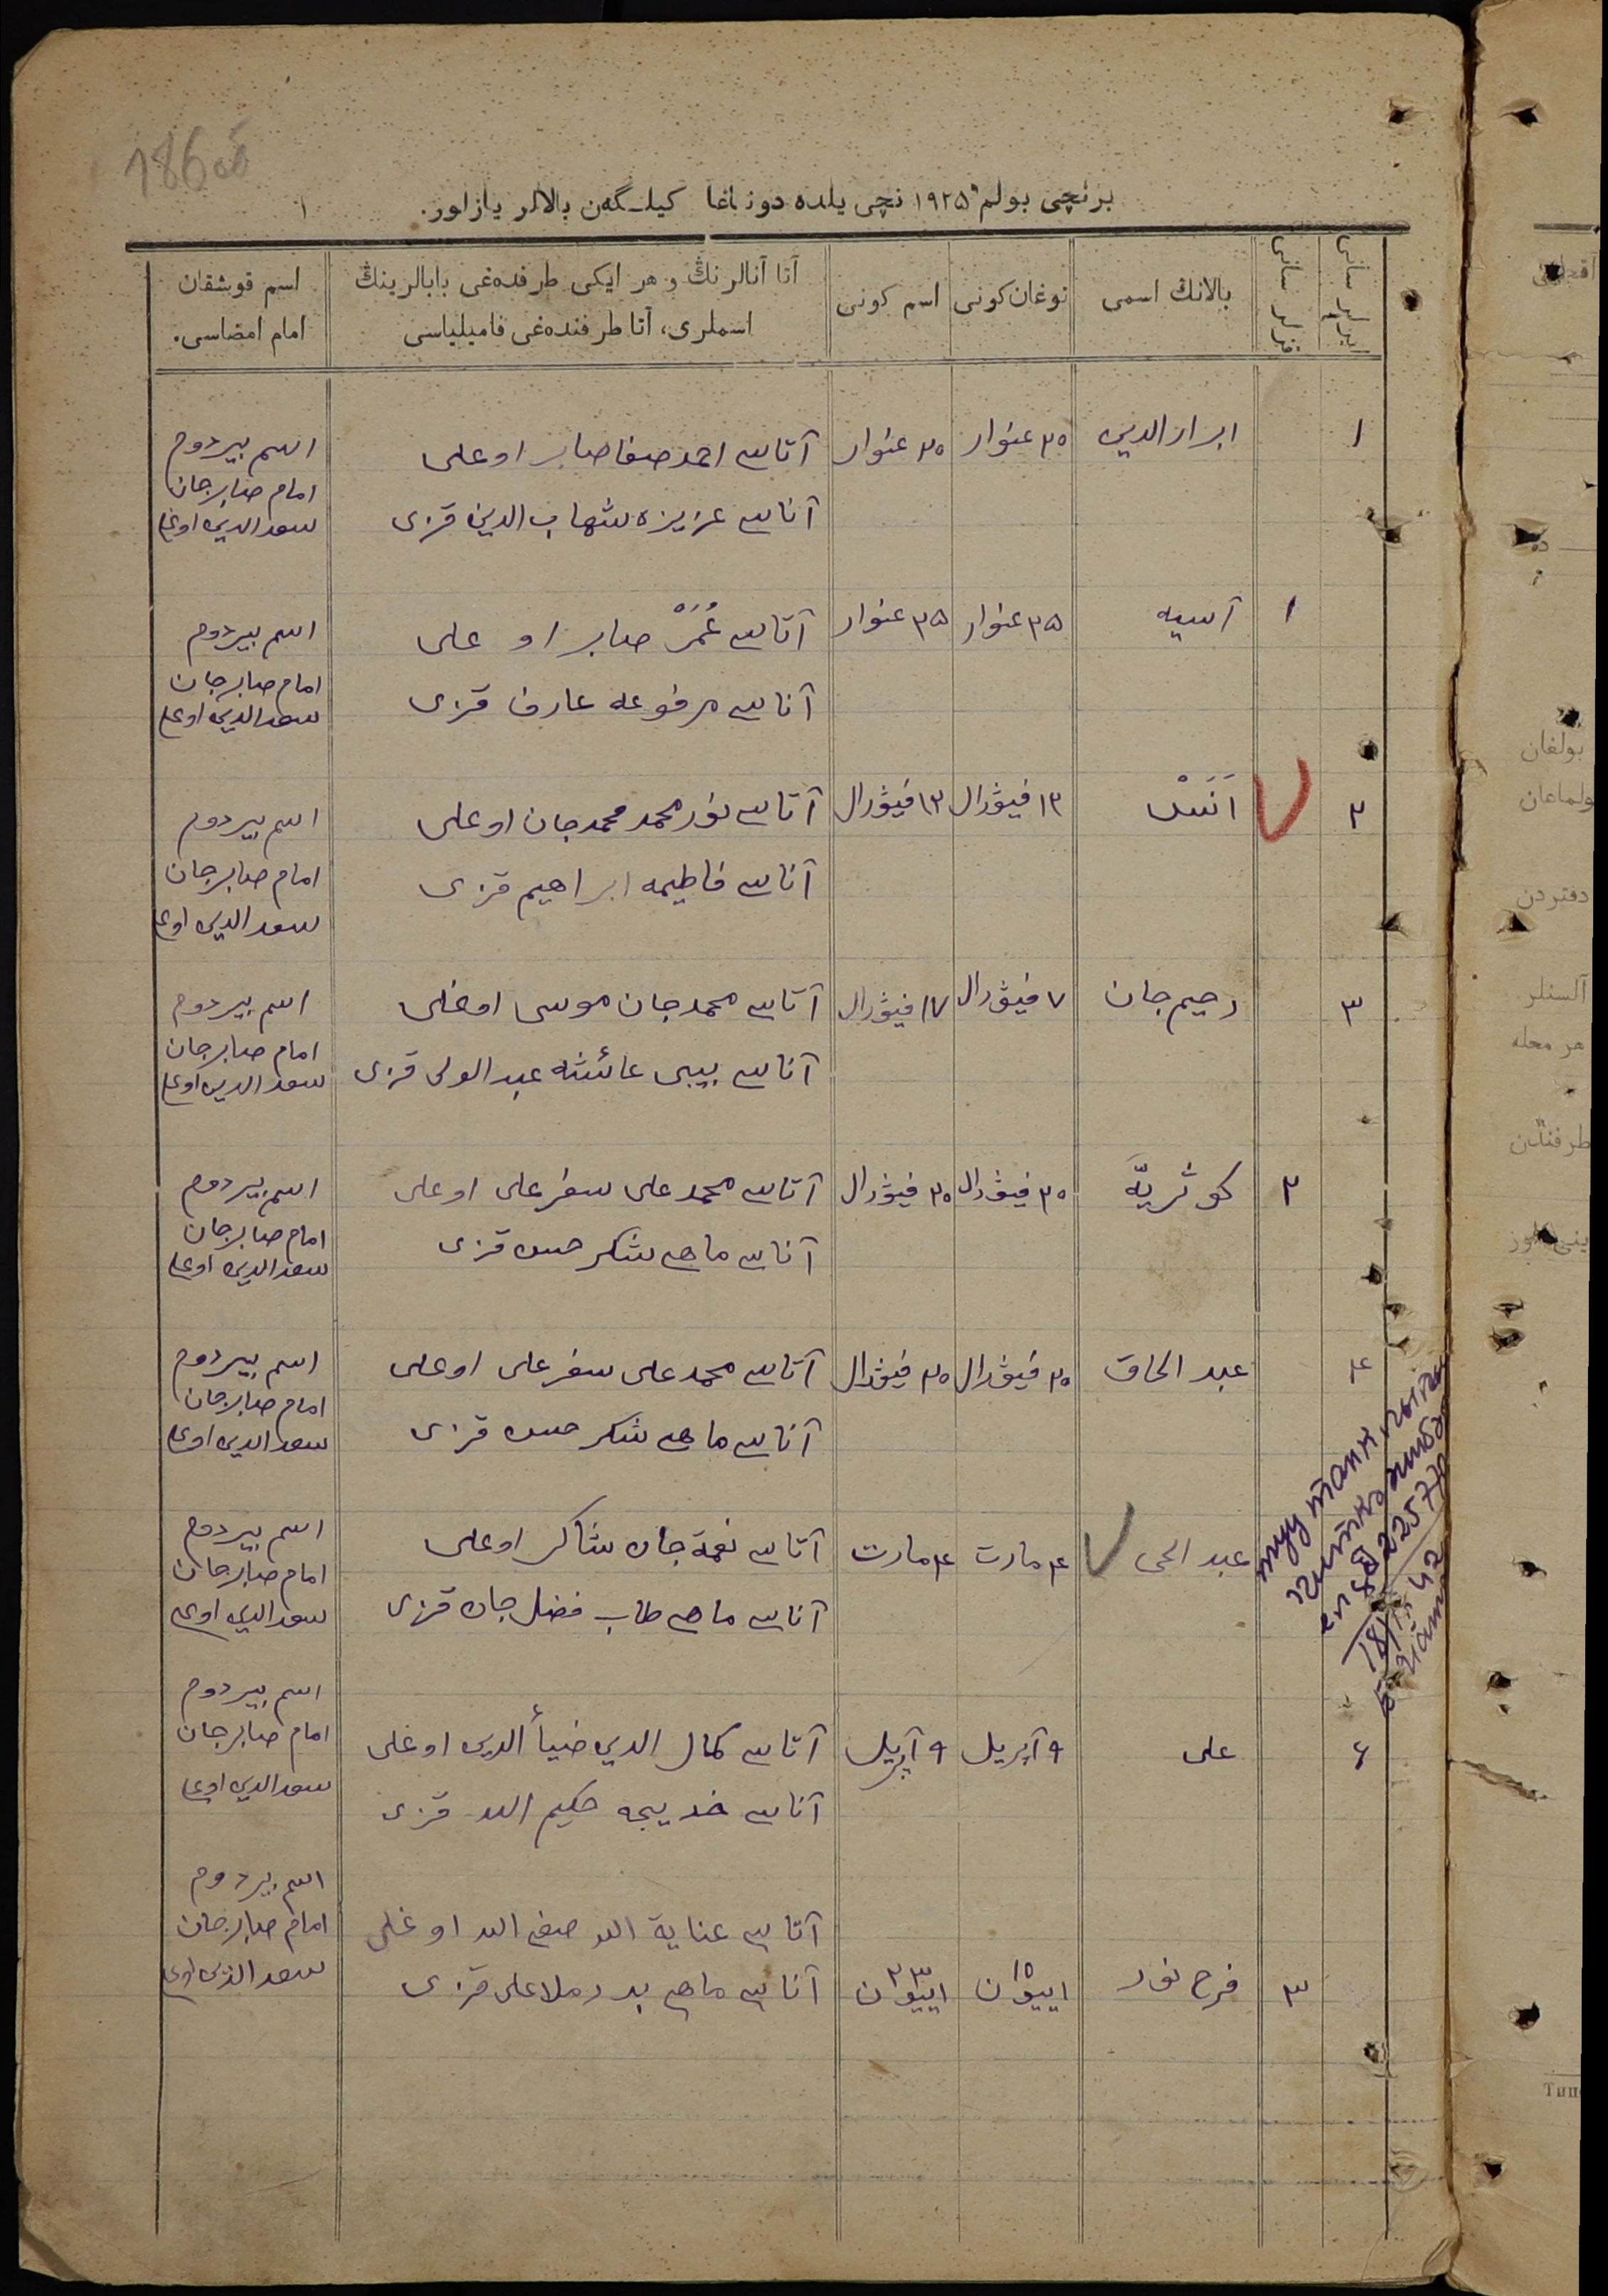 186 об
برنچی بولم ۱۹۲۵ نچی یلده دونیاغا کیلـگەن بالالر یازلور. ۱
ایرلر سانی
قزلر سانی
بالانڭ اسمی
توغان کونی
اسم کونی
آتا آنالرنڭ و هر ایکی طرفدەغی بابالرینڭ
اسملری، آتا طرفندەغی فامیلیاسی
اسم قوشقان
امام امضاسی.
۱ ابرار الدین ۲۰ غنوار ۲۰ غنوار آتاسی احمد صفا صابر اوغلی
آناسی عزیزه شهاب الدین قزی
اسم بیردوم
امام صابرجان
سعد الدین اوغلی
۱ آسیه ۲۵ غنوار ۲۵ غنوار آتاسی عُمَرْ صابر اوغلی
آناسی مرفوعه عارف قزی
اسم بیردوم
امام صابرجان
سعد الدین اوغلی
۲ اَنَسْ ۱۲ فیۋرال ۱۲ فیۋرال آتاسی نورمحمد محمدجان اوغلی
آناسی فاطیمه ابراهیم قزی
اسم بیردوم
امام صابرجان
سعد الدین اوغلی
۳ رحیم جان ۷ فیۋرال ۱۷ فیۋرال آتاسی محمدجان موسی اوغلی
آناسی بیبی عائشه عبد الولی قزی
اسم بیردوم
امام صابرجان
سعد الدین اوغلی
۲ کوثریّه ۲۰ فیۋرال ۲۰ فیۋرال آتاسی محمد علی سفر علی اوغلی
آناسی ماهی شکر حسن قزی
اسم بیردوم
امام صابرجان
سعد الدین اوغلی
۴ عبد الحاق ۲۰ فیۋرال ۲۰ فیۋرال آتاسی محمد علی سفر علی اوغلی
آناسی ماهی شکر حسن قزی
اسم بیردوم
امام صابرجان
سعد الدین اوغلی
عبد الحی ۴ مارت ۴ مارت آتاسی نعمة جان شاکر اوغلی
آناسی ماهی طاب فضل جان قزی
اسم بیردوم
امام صابرجان
سعد الدین اوغلی
۶ علی ۹ آپریل ۹ آپریل آتاسی کمال الدین ضیأ الدین اوغلی
آناسی خدیجه حکیم الله قزی
اسم بیردوم
امام صابرجان
سعد الدین اوغلی
۳ فرح نور ۱۵ اییۋن ۲۳ اییۋن آتاسی عنایة الله صفی الله اوغلی
آناسی ماهی بدر ملا علی قزی
اسم بیردوم
امام صابرجان
سعد الدین اوغلی
بولغان
ولماغان
دفتردن
آلسنلر
هر محله
طرفندن
Тип